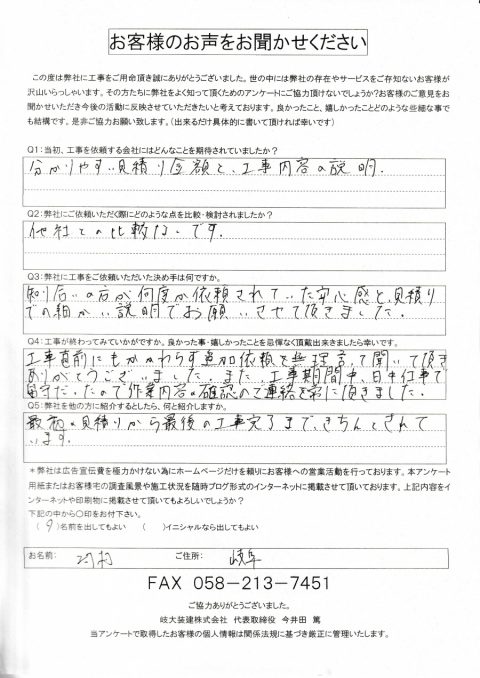 お客様のお声をお聞かせください
この度は弊社に工事をご用命頂き誠にありがとうございました。世の中には弊社の存在やサービスをご存知ないお客様が
沢山いらっしゃいます。その方たちに弊社をよく知って頂くためのアンケートにご協力頂けないでしょうか?お客様のご意見をお
聞かせいただき今後の活動に反映させていただきたいと考えております。良かったこと、嬉しかったことどのような些細な事で
も結構です。是非ご協力お願い致します。(出来るだけ具体的に書いて頂ければ幸いです)
Q1:当初、工事を依頼する会社にはどんなことを期待されていましたか?
分かりやすい見積り金額と、工事内容の説明.
Q2:弊社にご依頼いただく際にどのような点を比較・検討されましたか?
他社との比較なしです.
Q3:弊社に工事をご依頼いただいた決め手は何ですか。
知り合いの方が何度か依頼されていた安心感と、見積り
での細かい説明でお願いさせて頂きました.
Q4:工事が終わってみていかがですか。良かった事・嬉しかったことを忌憚なく頂戴出来ましたら幸いです。
工事直前にもかかわらず追加依頼を無理言って聞いて頂き
ありがとうございました.また、工事期間中、日中仕事で
留守だったので作業内容の確認のご連絡を常に頂きました.
Q5:弊社を他の方に紹介するとしたら、何と紹介しますか。
最初の見積りから最後の工事完了まできちんとされて
います.
*弊社は広告宣伝費を極力かけない為にホームページだけを頼りにお客様への営業活動を行っております。本アンケート
用紙またはお客様宅の調査風景や施工状況を随時ブログ形式のインターネットに掲載させて頂いております。上記内容をイ
ンターネットや印刷物に掲載させて頂いてもよろしいでしょうか?
下記の中から〇印をお付下さい。
( )名前を出してもよい ( )イニシャルなら出してもよい
お名前: 河村 ご住所: 岐阜
FAX 058-213-7451
ご協力ありがとうございました。
岐大装建株式会社 代表取締役 今井田 篤
当アンケートで取得したお客様の個人情報は関係法規に基づき厳正に管理いたします。